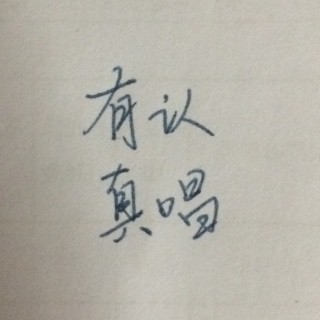 有认
真唱